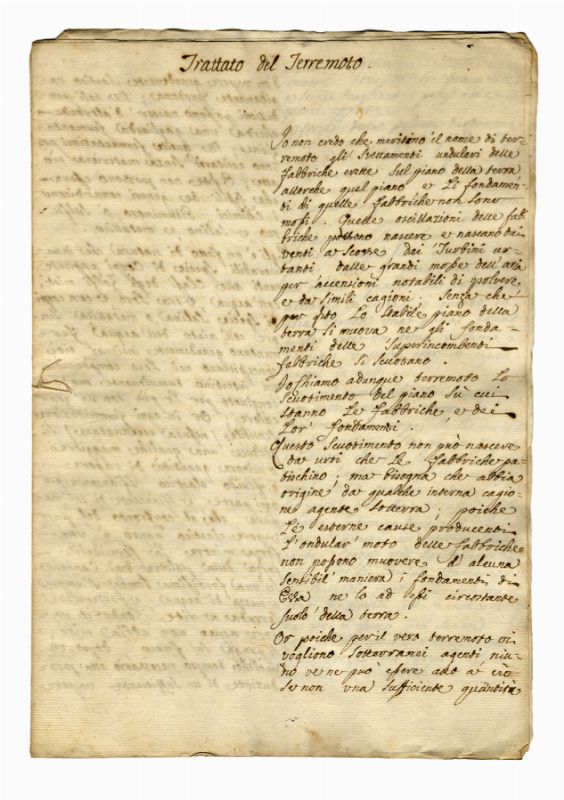 Trattato del Terremoto.
Io non credo che meritino il nome di ter-
remoto gli Scottamenti undulari delle
fabbriche erette sul piano della terra
allorche quel piano e li fondamen-
ti di quelle fabbriche non sono
mossi. Quelle oscillazioni delle fab
briche possono nascere e nascano dai
venti a Scosse dai Turbini ur-
tanti dalle grandi mosse dell'aria
per accensioni notabili di polvere
e da simili cagioni; Senza che
per questo Lo Stabile piano della
terra si muova ne gli fonda-
menti delle Superincombenti
fabbriche si Scuotano.
Io chiamo adunque terremoto Lo
Scuotimento del piano su cui
stanno Le fabbriche, e dei
Lor' fondamenti.
Questo Scuotimento non può nascere
da urti che Le fabbriche pa-
tischino; ma bisogna che abbia
origine da qualche interna cagio-
ne agente Sotterra; poiche
Le esterne cause producenti
L'ondular' moto delle fabbriche
non possono muovere d'alcuna
sentibil' maniera i fondamenti di
Essa ne lo ad essi circostante
suolo della terra.
Or poiche per il vero terremoto vi
vogliono Sottorranei agenti niu-
no ve ne può essere atto a ciò
se non una sufficiente quantità